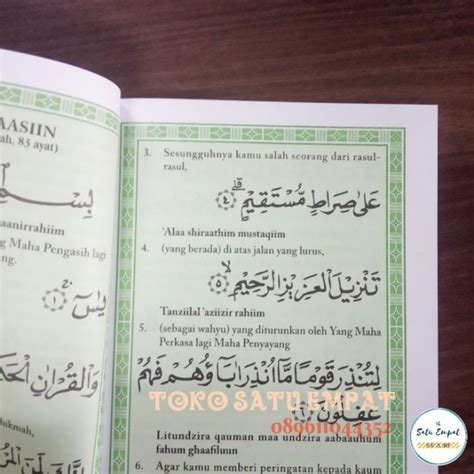 AASIIN
ah, 83 ayat)
aanirrahiim
ng Maha Pengasih lagi
ang.
يٰسۤ ۝١
hikmah,
3. Sesungguhnya kamu salah seorang dari rasul-
rasul,
عَلٰى صِرَاطٍ مُّسْتَقِيْمٍۗ ۝٤
'Alaa shiraathim mustaqiim
4. (yang berada) di atas jalan yang lurus,
تَنْزِيْلَ الْعَزِيْزِ الرَّحِيْمِۙ ۝٥
Tanziilal 'aziizir rahiim
5. (sebagai wahyu) yang diturunkan oleh Yang Maha
Perkasa lagi Maha Penyayang
لِتُنْذِرَ قَوْمًا مَّآ اُنْذِرَ اٰبَاۤؤُهُمْ فَهُمْ
غٰفِلُوْنَ ۝٦
Litundzira qauman maa undzira aabaauhum
fahum ghaafiluun
6. Agar kamu memberi peringatan kepada kaum
TOKO SATU EMPAT
089611044352
Satu Empat